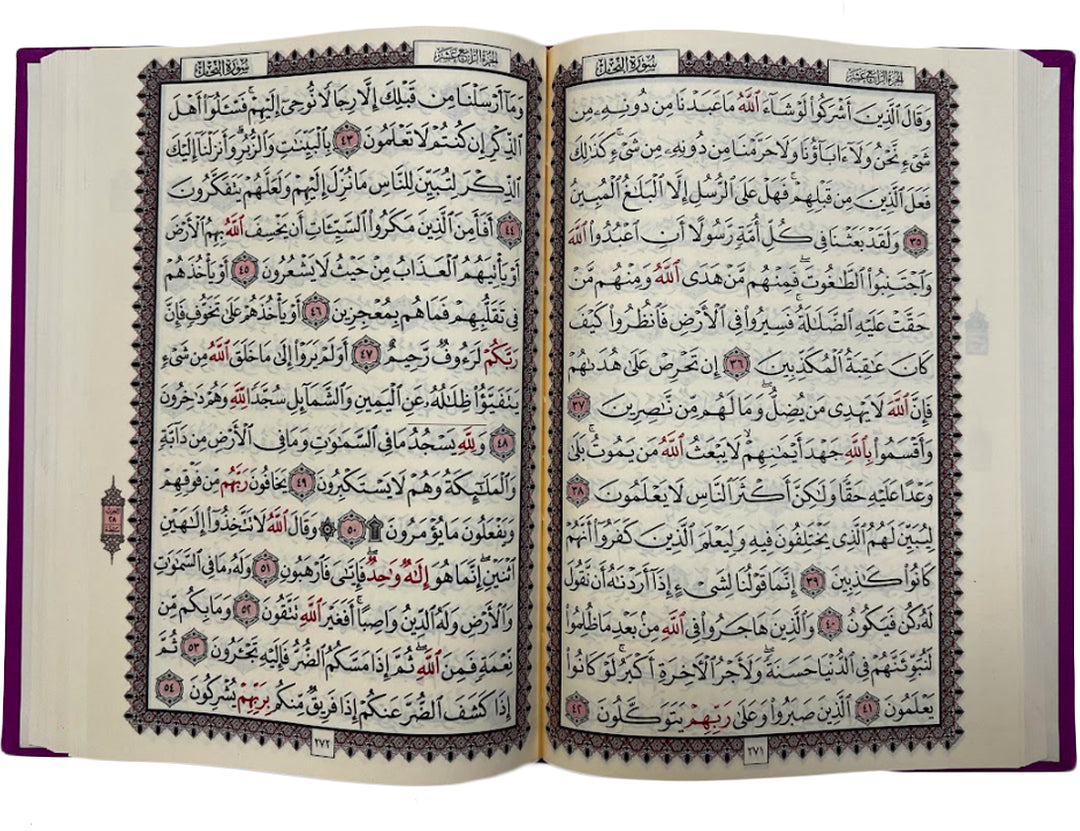 الجزء الرابع عشر
سورة النحل
وَقَالَ ٱلَّذِينَ أَشْرَكُوا۟ لَوْ شَآءَ ٱللَّهُ مَا عَبَدْنَا مِن دُونِهِۦ مِن
شَىْءٍ نَّحْنُ وَلَآ ءَابَآؤُنَا وَلَا حَرَّمْنَا مِن دُونِهِۦ مِن شَىْءٍ ۚ كَذَٰلِكَ
فَعَلَ ٱلَّذِينَ مِن قَبْلِهِمْ ۚ فَهَلْ عَلَى ٱلرُّسُلِ إِلَّا ٱلْبَلَٰغُ ٱلْمُبِينُ
٣٥ وَلَقَدْ بَعَثْنَا فِى كُلِّ أُمَّةٍ رَّسُولًا أَنِ ٱعْبُدُوا۟ ٱللَّهَ
وَٱجْتَنِبُوا۟ ٱلطَّٰغُوتَ ۖ فَمِنْهُم مَّنْ هَدَى ٱللَّهُ وَمِنْهُم مَّنْ
حَقَّتْ عَلَيْهِ ٱلضَّلَٰلَةُ ۚ فَسِيرُوا۟ فِى ٱلْأَرْضِ فَٱنظُرُوا۟ كَيْفَ
كَانَ عَٰقِبَةُ ٱلْمُكَذِّبِينَ ٣٦ إِن تَحْرِصْ عَلَىٰ هُدَىٰهُمْ
فَإِنَّ ٱللَّهَ لَا يَهْدِى مَن يُضِلُّ ۖ وَمَا لَهُم مِّن نَّٰصِرِينَ ٣٧
وَأَقْسَمُوا۟ بِٱللَّهِ جَهْدَ أَيْمَٰنِهِمْ ۙ لَا يَبْعَثُ ٱللَّهُ مَن يَمُوتُ ۚ بَلَىٰ
وَعْدًا عَلَيْهِ حَقًّا وَلَٰكِنَّ أَكْثَرَ ٱلنَّاسِ لَا يَعْلَمُونَ ٣٨
لِيُبَيِّنَ لَهُمُ ٱلَّذِى يَخْتَلِفُونَ فِيهِ وَلِيَعْلَمَ ٱلَّذِينَ كَفَرُوٓا۟ أَنَّهُمْ
كَانُوا۟ كَٰذِبِينَ ٣٩ إِنَّمَا قَوْلُنَا لِشَىْءٍ إِذَآ أَرَدْنَٰهُ أَن نَّقُولَ
لَهُۥ كُن فَيَكُونُ ٤٠ وَٱلَّذِينَ هَاجَرُوا۟ فِى ٱللَّهِ مِنۢ بَعْدِ مَا ظُلِمُوا۟
لَنُبَوِّئَنَّهُمْ فِى ٱلدُّنْيَا حَسَنَةً ۖ وَلَأَجْرُ ٱلْأَخِرَةِ أَكْبَرُ ۚ لَوْ كَانُوا۟
يَعْلَمُونَ ٤١ ٱلَّذِينَ صَبَرُوا۟ وَعَلَىٰ رَبِّهِمْ يَتَوَكَّلُونَ ٤٢
٢٧١
الجزء الرابع عشر
سورة النحل
وَمَآ أَرْسَلْنَا مِن قَبْلِكَ إِلَّا رِجَالًا نُّوحِىٓ إِلَيْهِمْ ۚ فَسْـَٔلُوٓا۟ أَهْلَ
ٱلذِّكْرِ إِن كُنتُمْ لَا تَعْلَمُونَ ٤٣ بِٱلْبَيِّنَٰتِ وَٱلزُّبُرِ ۗ وَأَنزَلْنَآ إِلَيْكَ
ٱلذِّكْرَ لِتُبَيِّنَ لِلنَّاسِ مَا نُزِّلَ إِلَيْهِمْ وَلَعَلَّهُمْ يَتَفَكَّرُونَ
٤٤ أَفَأَمِنَ ٱلَّذِينَ مَكَرُوا۟ ٱلسَّيِّـَٔاتِ أَن يَخْسِفَ ٱللَّهُ بِهِمُ ٱلْأَرْضَ
أَوْ يَأْتِيَهُمُ ٱلْعَذَابُ مِنْ حَيْثُ لَا يَشْعُرُونَ ٤٥ أَوْ يَأْخُذَهُمْ
فِى تَقَلُّبِهِمْ فَمَا هُم بِمُعْجِزِينَ ٤٦ أَوْ يَأْخُذَهُمْ عَلَىٰ تَخَوُّفٍ فَإِنَّ
رَبَّكُمْ لَرَءُوفٌ رَّحِيمٌ ٤٧ أَوَلَمْ يَرَوْا۟ إِلَىٰ مَا خَلَقَ ٱللَّهُ مِن شَىْءٍ
يَتَفَيَّؤُا۟ ظِلَٰلُهُۥ عَنِ ٱلْيَمِينِ وَٱلشَّمَآئِلِ سُجَّدًا لِّلَّهِ وَهُمْ دَٰخِرُونَ
٤٨ وَلِلَّهِ يَسْجُدُ مَا فِى ٱلسَّمَٰوَٰتِ وَمَا فِى ٱلْأَرْضِ مِن دَآبَّةٍ
وَٱلْمَلَٰٓئِكَةُ وَهُمْ لَا يَسْتَكْبِرُونَ ٤٩ يَخَافُونَ رَبَّهُم مِّن فَوْقِهِمْ
وَيَفْعَلُونَ مَا يُؤْمَرُونَ ۩ ٥٠ ۞ وَقَالَ ٱللَّهُ لَا تَتَّخِذُوٓا۟ إِلَٰهَيْنِ
ٱثْنَيْنِ ۖ إِنَّمَا هُوَ إِلَٰهٌ وَٰحِدٌ ۖ فَإِيَّٰىَ فَٱرْهَبُونِ ٥١ وَلَهُۥ مَا فِى ٱلسَّمَٰوَٰتِ
وَٱلْأَرْضِ وَلَهُ ٱلدِّينُ وَاصِبًا ۚ أَفَغَيْرَ ٱللَّهِ تَتَّقُونَ ٥٢ وَمَا بِكُم مِّن
نِّعْمَةٍ فَمِنَ ٱللَّهِ ۖ ثُمَّ إِذَا مَسَّكُمُ ٱلضُّرُّ فَإِلَيْهِ تَجْـَٔرُونَ ٥٣ ثُمَّ
إِذَا كَشَفَ ٱلضُّرَّ عَنكُمْ إِذَا فَرِيقٌ مِّنكُم بِرَبِّهِمْ يُشْرِكُونَ ٥٤
٢٧٢